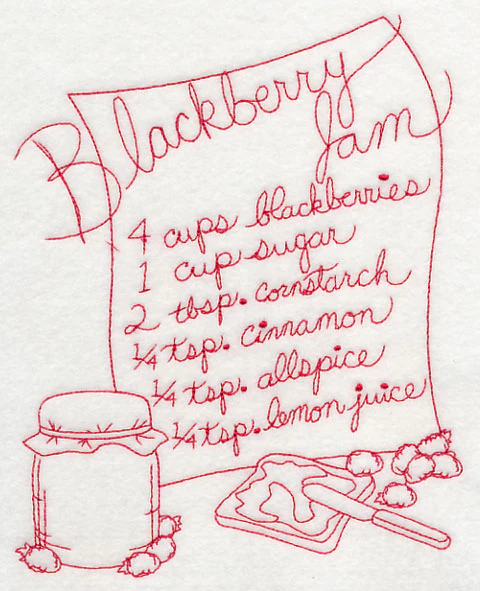 Blackberry
Jam
4 cups blackberries
1 cup sugar
2 tbsp. cornstarch
1/4 tsp. cinnamon
1/4 tsp. allspice
1/4 tsp. lemon juice